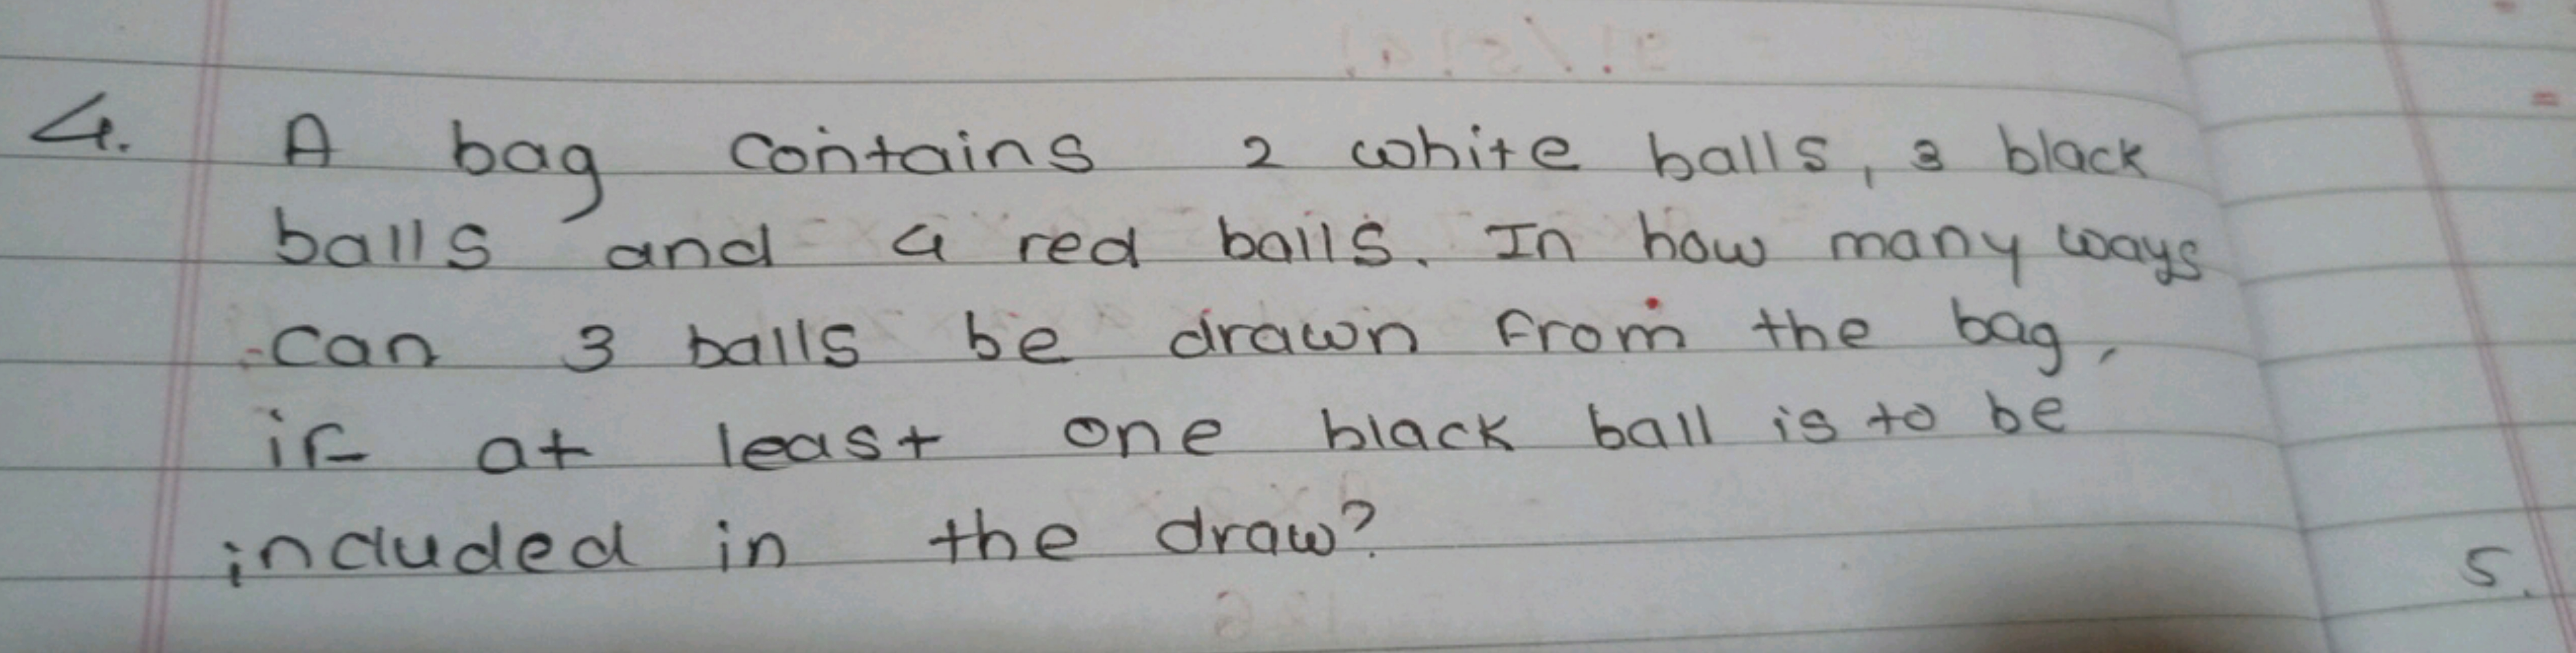 4. A bag contains 2 white balls, 3 black
balls and 4 red balls. In how many ways
can 3 balls be drawn from the bag,
if at least one black ball is to be
included in the draw?
5.